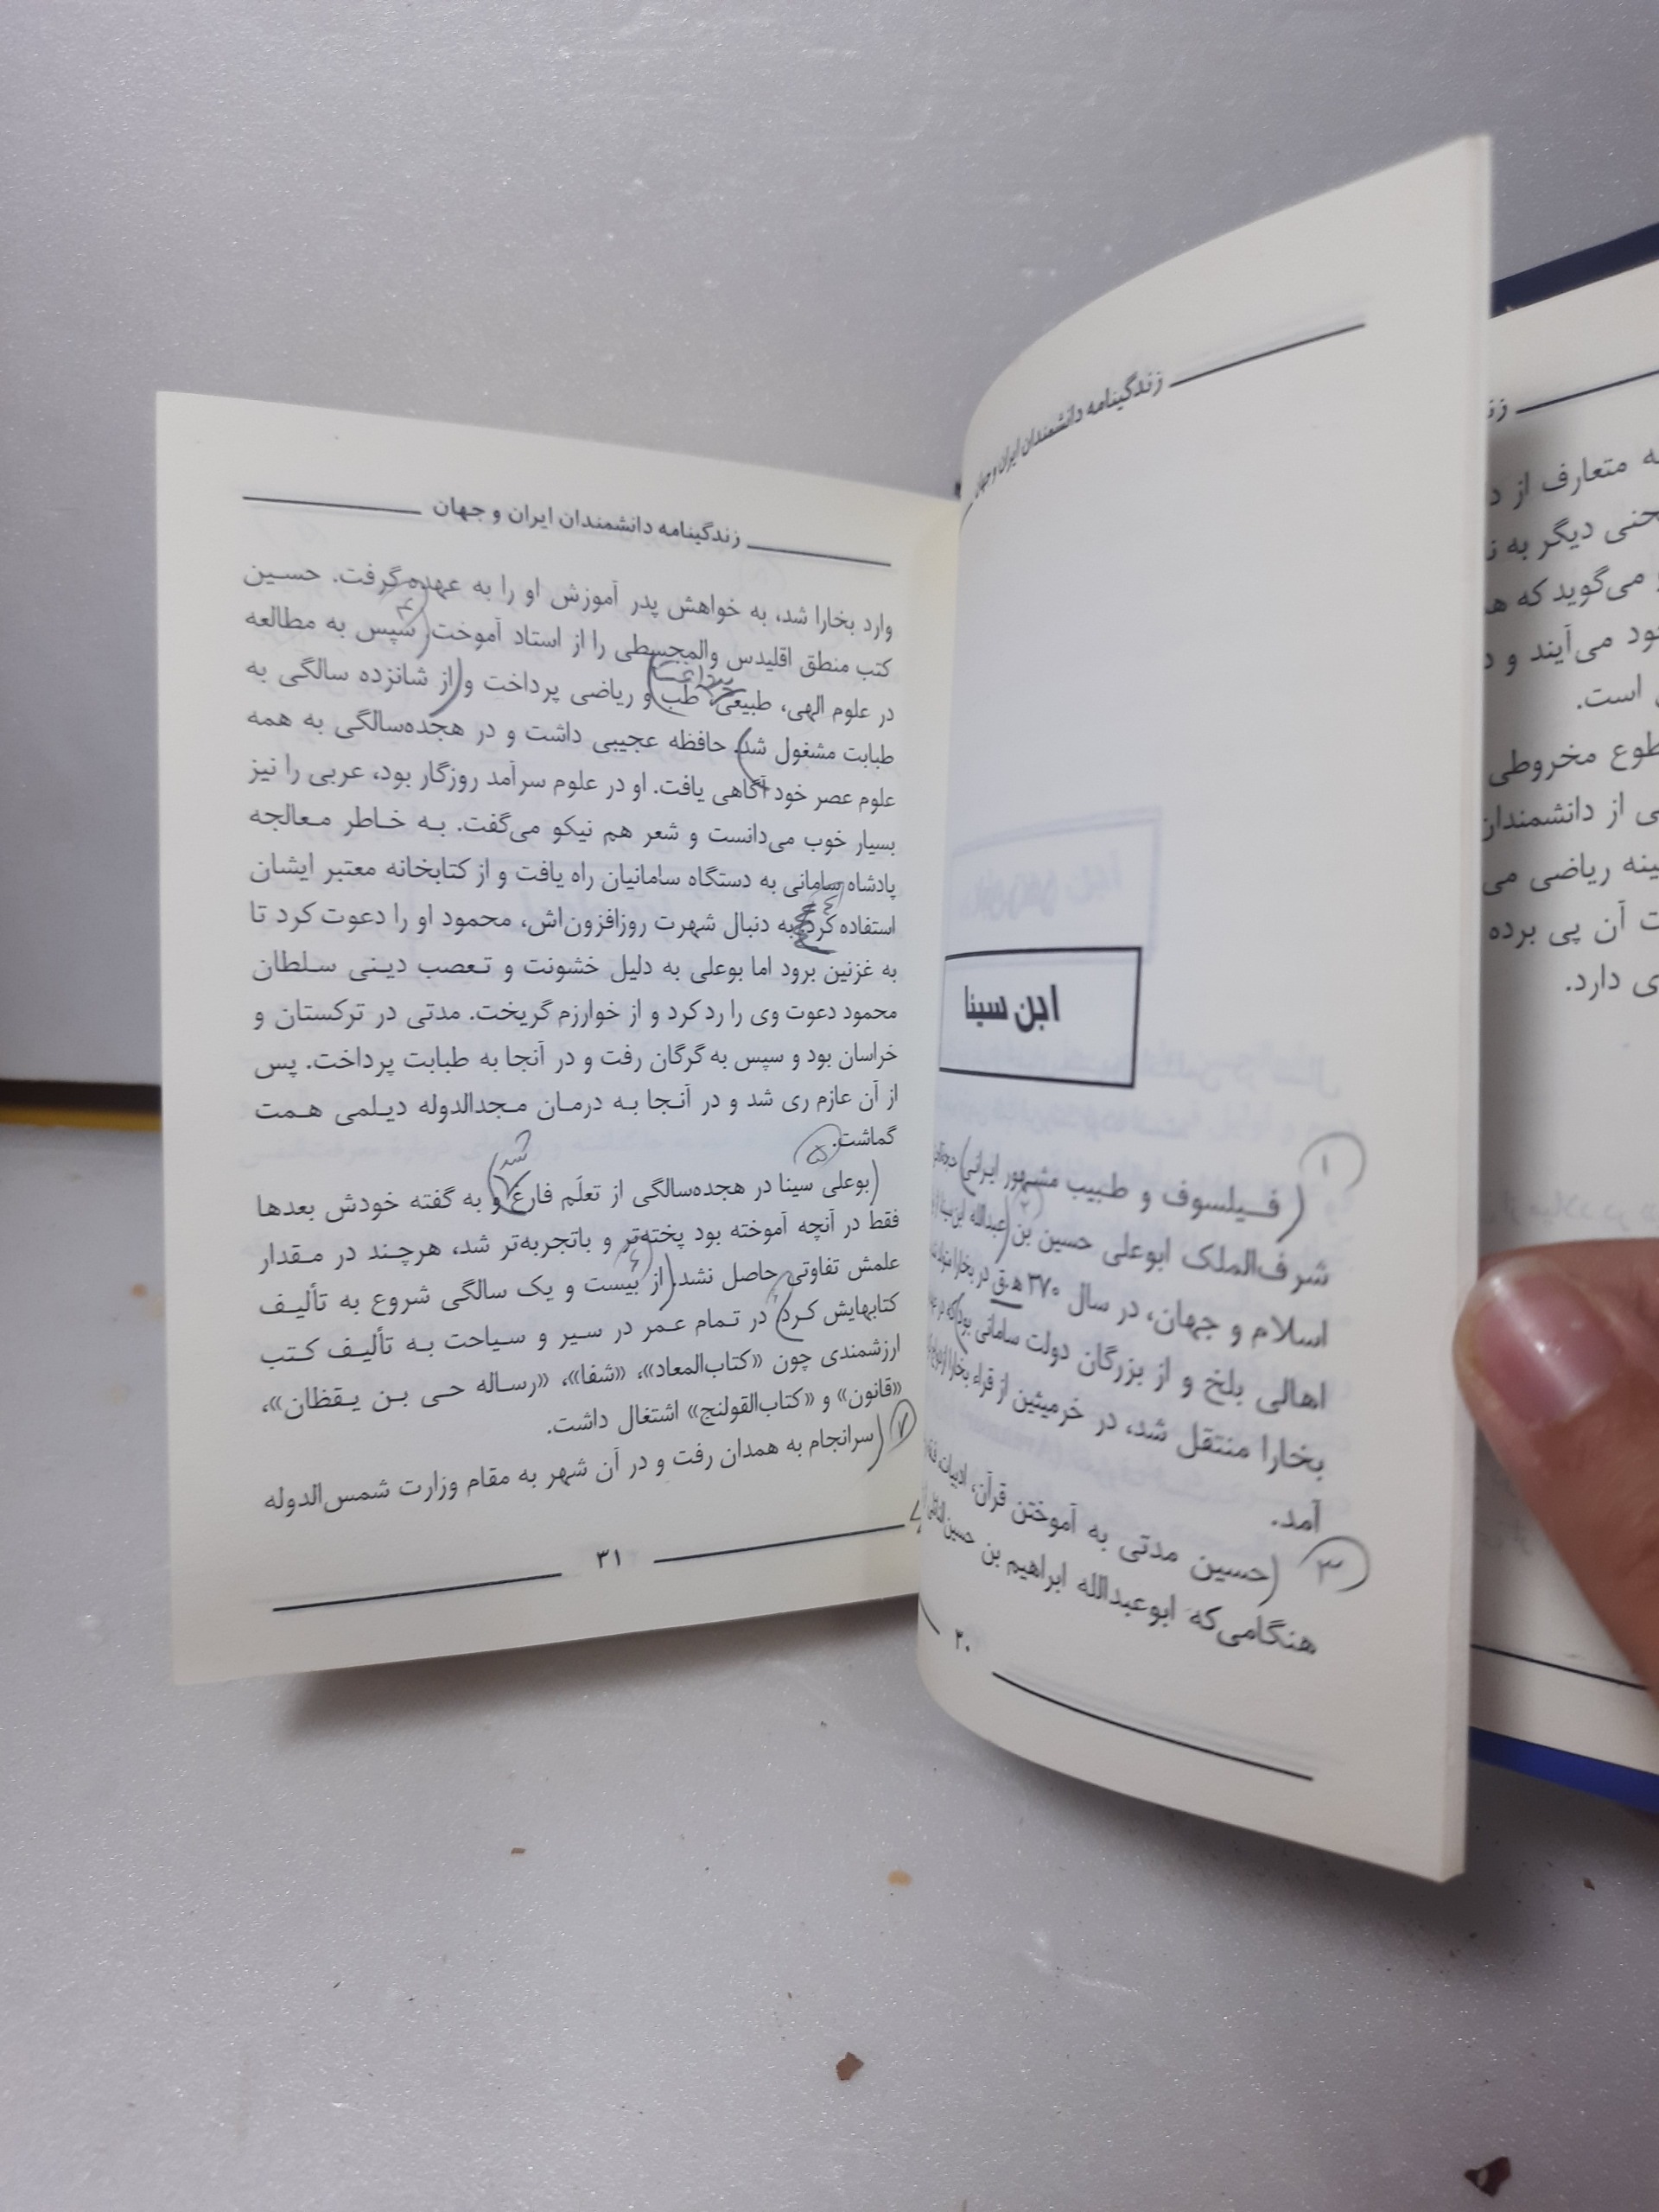 زندگینامه دانشمندان ایران و جهان
ابن سینا
۱
(فیلسوف و طبیب مشهور ایرانی)
شرف‌الملک ابوعلی حسین بن (عبدالله ابن سینا
۲
اسلام و جهان، در سال ۳۷۰ ه‍.ق در بخارا
اهالی بلخ و از بزرگان دولت سامانی بود) که در
بخارا منتقل شد، در خرمیثین از قراء بخارا
آمد.
۳
(حسین مدتی به آموختن قرآن، ادبیات،
هنگامی‌که ابوعبدالله ابراهیم بن حسین
۳۰
زندگینامه دانشمندان ایران و جهان
وارد بخارا شد، به خواهش پدر آموزش او را به عهده گرفت. حسین
کتب منطق اقلیدس والمجسطی را از استاد آموخت. (سپس به مطالعه
۴
در علوم الهی، طبیعی، طب) و ریاضی پرداخت و (از شانزده سالگی به
پرداخت
طبابت مشغول شد.) حافظه عجیبی داشت و در هجده‌سالگی به همه
علوم عصر خود آگاهی یافت. او در علوم سرآمد روزگار بود، عربی را نیز
بسیار خوب می‌دانست و شعر هم نیکو می‌گفت. به خاطر معالجه
پادشاه سامانی به دستگاه سامانیان راه یافت و از کتابخانه معتبر ایشان
استفاده کرد. به دنبال شهرت روزافزون‌اش، محمود او را دعوت کرد تا
به غزنین برود اما بوعلی به دلیل خشونت و تعصب دینی سلطان
محمود دعوت وی را رد کرد و از خوارزم گریخت. مدتی در ترکستان و
خراسان بود و سپس به گرگان رفت و در آنجا به طبابت پرداخت. پس
از آن عازم ری شد و در آنجا به درمان مجدالدوله دیلمی همت
گماشت.
۵
شد
(بوعلی سینا در هجده‌سالگی از تعلّم فارغ) و به گفته خودش بعدها
فقط در آنچه آموخته بود پخته‌تر و باتجربه‌تر شد، هرچند در مقدار
علمش تفاوتی حاصل نشد. (از بیست و یک سالگی شروع به تألیف
۶
کتابهایش کرد) در تمام عمر در سیر و سیاحت به تألیف کتب
ارزشمندی چون «کتاب‌المعاد»، «شفا»، «رساله حی بن یقظان»،
«قانون» و «کتاب‌القولنج» اشتغال داشت.
۷
(سرانجام به همدان رفت و در آن شهر به مقام وزارت شمس‌الدوله
۳۱
متعارف از
دیگر به
می‌گوید که
می‌آیند و
است.
مخروطی
از دانشمندان
ریاضی می
آن پی برده
دارد.